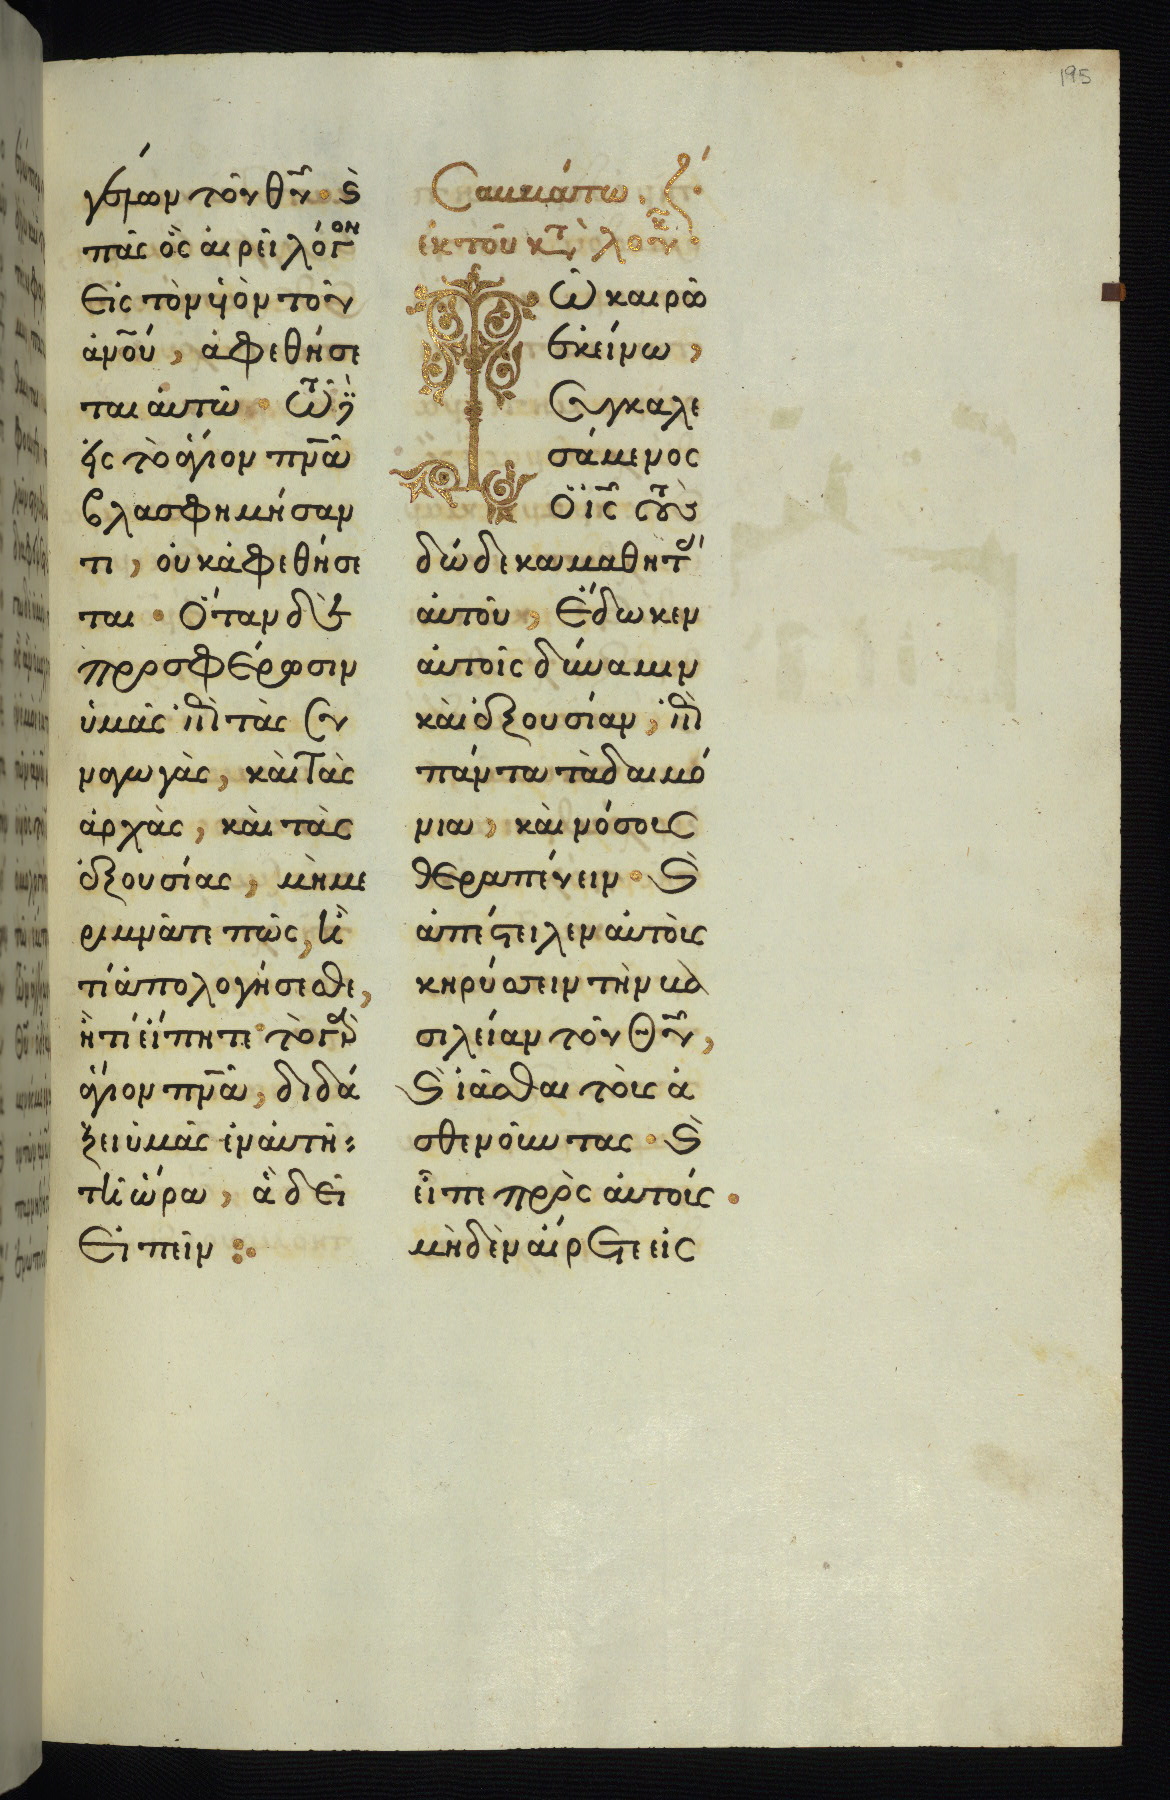 195
γέλων τοῦ θῦ· καὶ
πᾶς ὃς ἐρεῖ λόγον
εἰς τὸν υἱὸν τοῦ
ἀνοῦ, ἀφεθήσε
ται αὐτῶ· τῶ δὲ
εἰς τὸ ἅγιον πνᾶ
βλασφημήσαν
τι, οὐκ ἀφεθήσε
ται· Ὅταν δὲ
προσφέρωσιν
ὑμᾶς ἐπὶ τὰς συ
ναγωγὰς, καὶ τὰς
ἀρχὰς, καὶ τὰς
ἐξουσίας, μὴ με
ριμνᾶτε πῶς, ἢ
τί ἀπολογήσεσθε,
ἢ τί εἴπητε· τὸ γὰρ
ἅγιον πνᾶ, διδά
ξει ὑμᾶς ἐν αὐτῆ
τῆ ὥρα, ἃ δεῖ
εἰπεῖν :·
Σαββάτω. ζ´
ἐκ τοῦ κατὰ λουκ·
Τῶ καιρῶ
ἐκείνω,
συγκαλε
σάμενος
ὁ ις τοὺς
δώδεκα μαθητὰς
αὐτοῦ, ἔδωκεν
αὐτοῖς δύναμιν
καὶ ἐξουσίαν, ἐπὶ
πάντα τὰ δαιμό
νια, καὶ νόσους
θεραπεύειν· καὶ
ἀπέστειλεν αὐτοὺς
κηρύσσειν τὴν βα
σιλείαν τοῦ θῦ,
καὶ ἰᾶσθαι τοὺς ἀ
σθενοῦντας· καὶ
εἶπε πρὸς αὐτούς·
μὴδὲν αἴρετε εἰς